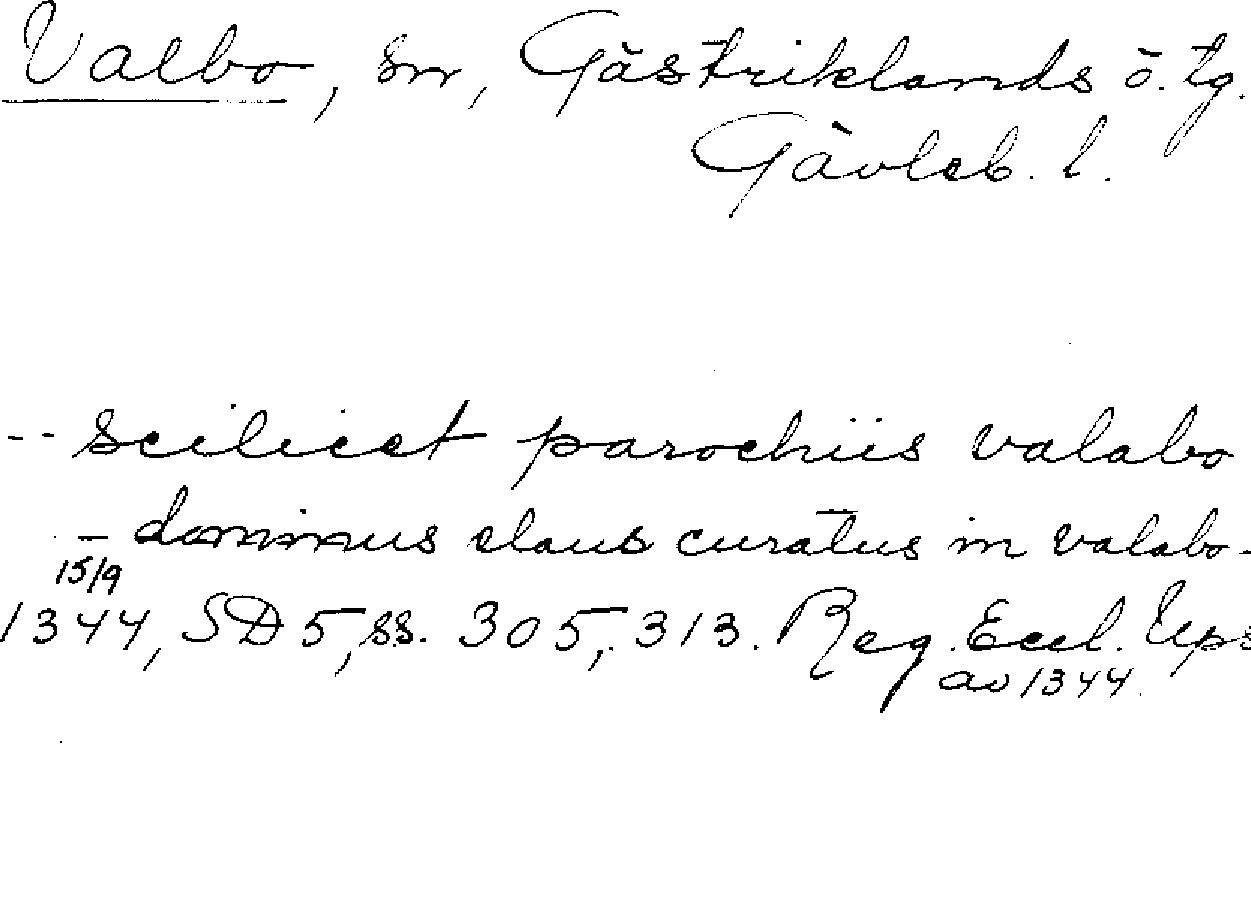 Valbo, sn, Gästriklands ö. tg.
Gävleb. l.
-- scilicet parochiis valabo
- dominus olaus curatus in valabo -
15/9
1344, SD 5, ss. 305, 313. Reg. Eccl. Ups
av 1344.